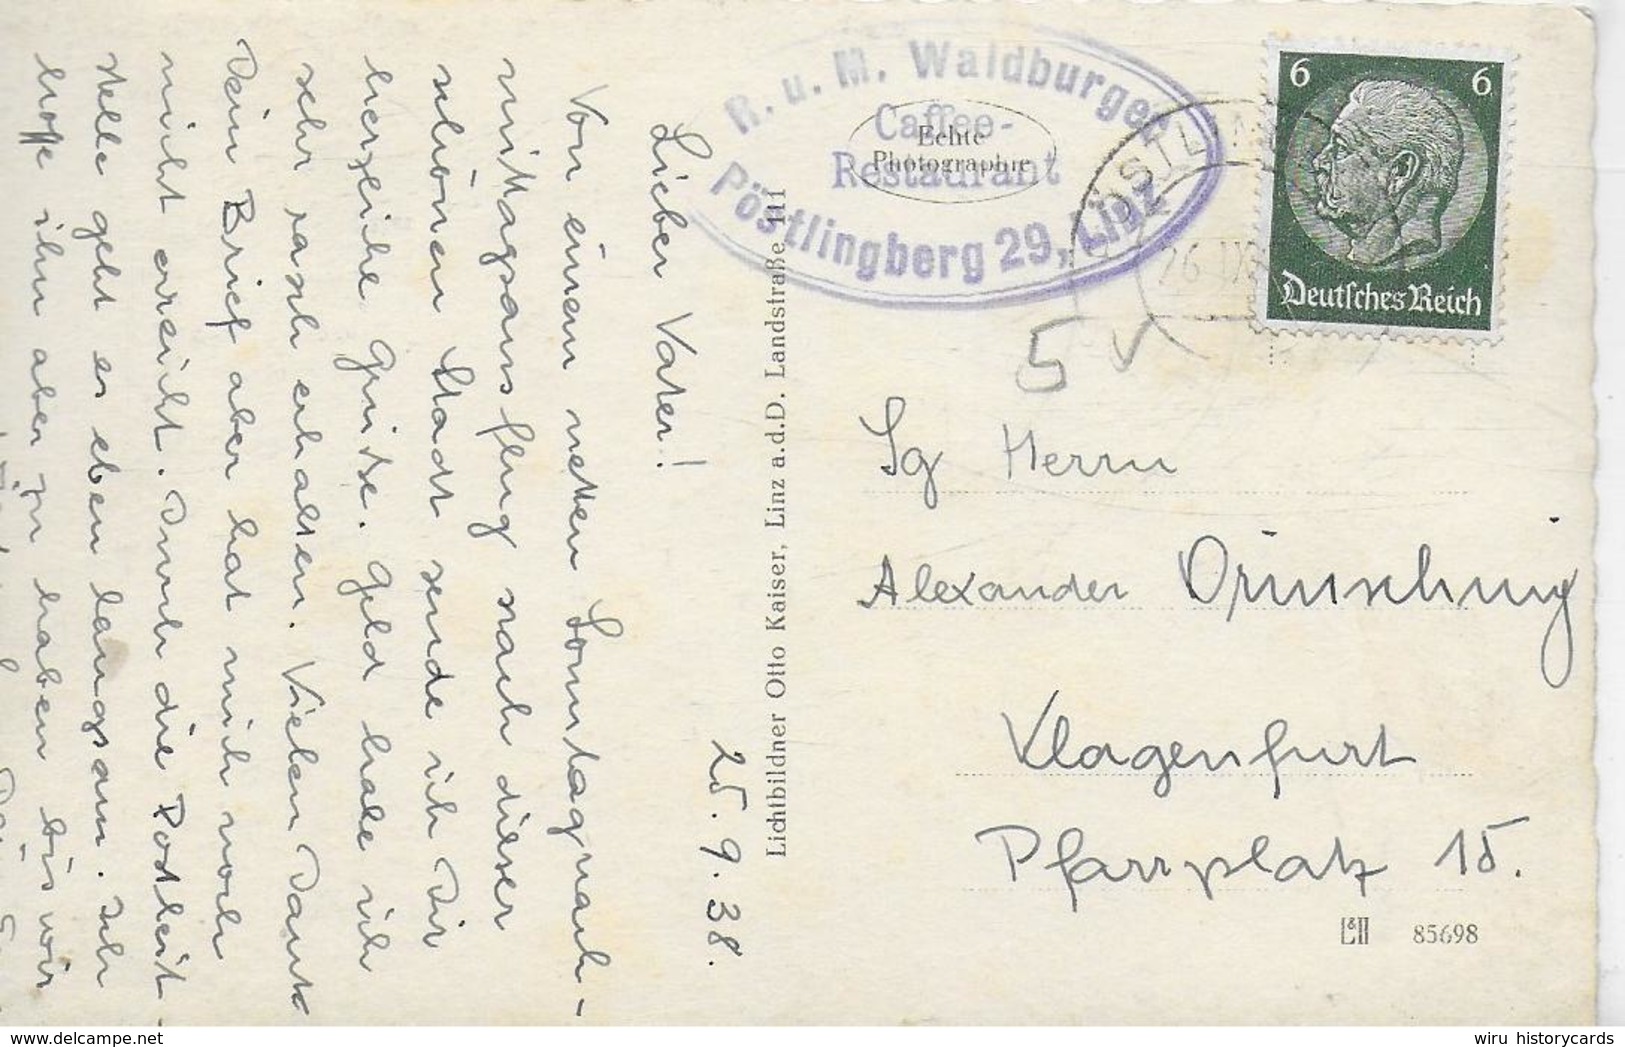 25. 9. 38.
Lieber Vater!
Von einem netten Sonntagnach-
mittagsausflug nach dieser
schönen Stadt sende ich Dir
herzliche Grüße. Geld habe ich
sehr rasch erhalten. Vielen Dank
Dein Brief aber hat mich noch
nicht erreicht. Durch die Postleit-
stelle geht es eben langsam. Ich
hoffe ihn aber zu haben bis wir
Lichtbildner Otto Kaiser, Linz a.d.D. Landstraße 111
R. u. M. Waldburger
Caffee-
Restaurant
Pöstlingberg 29, Linz
Echte
Photographie
PÖSTLIN
26. IX
6 6
Deutsches Reich
5
Sg Herrn
Alexander
Klagenfurt
Pfarrplatz 15.
85698
wiru historycards